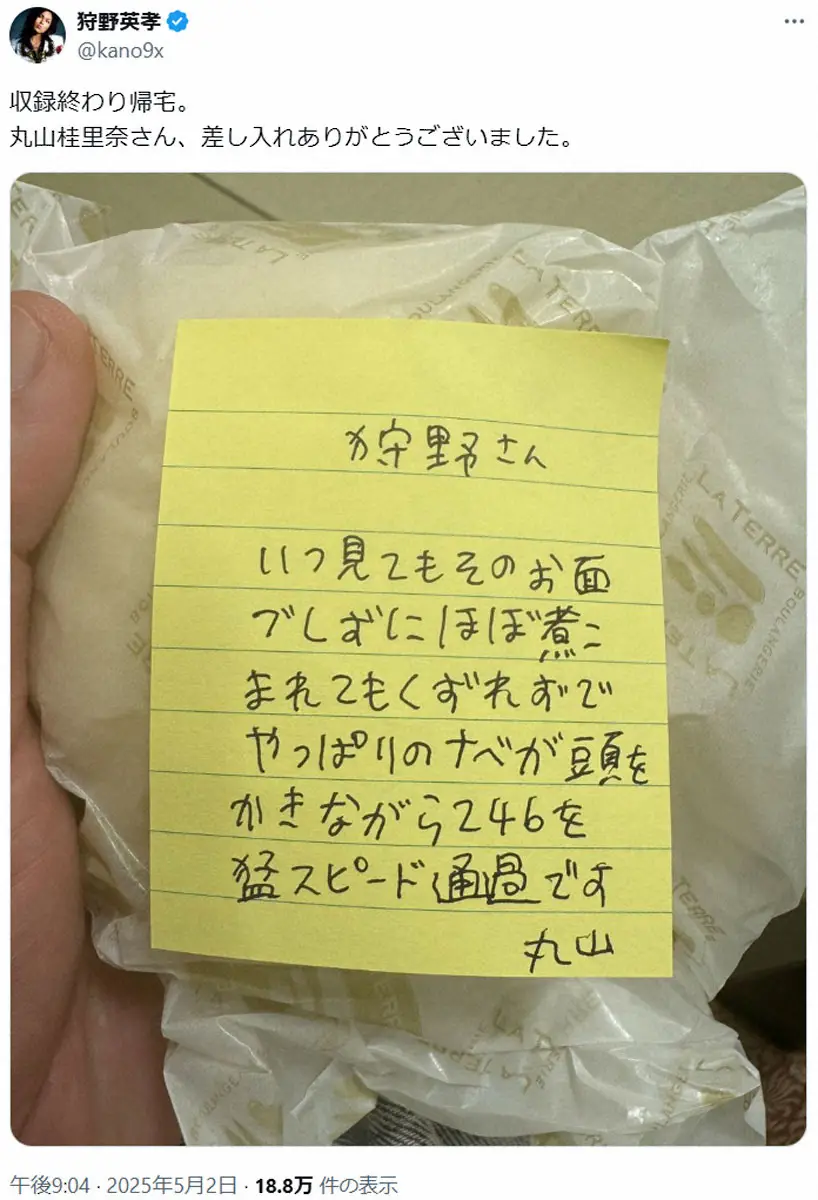 狩野英孝
@kano9x
収録終わり帰宅。
丸山桂里奈さん、差し入れありがとうございました。
LA TERRE
BOULANGERIE
狩野さん
いつ見てもそのお面
づしずにほぼ煮こ
まれてもくずれずで
やっぱりのナベが頭を
かきながら246を
猛スピード通過です
丸山
午後9:04 · 2025年5月2日 · 18.8万 件の表示